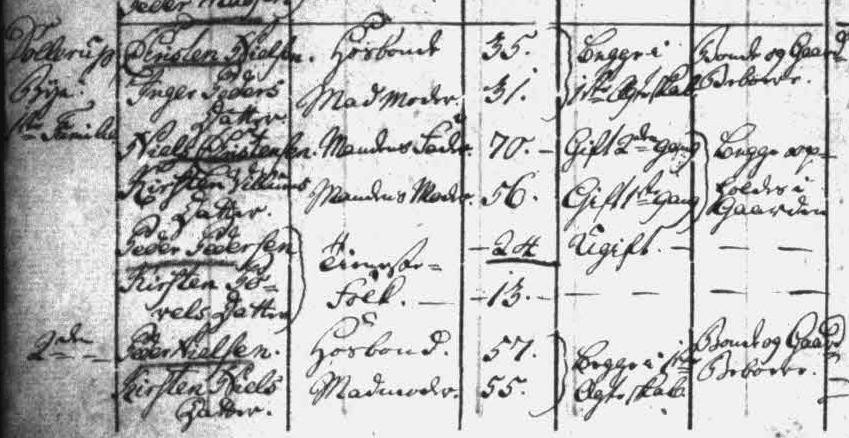 Peder Madsen
Dollerup Christen Nielsen. Hosbonde 35. Begge i Bonde og Gaard
Bye. Inger Peders Madmoder. 31. 1ste Ægteskab Beboere.
1ste Familie Datter.
Niels Christensen. Mandens Fader. 70. – Gift 2den gang Begge op-
Kirsten Villums Mandens Moder. 56. Gift 1ste gang holdes i
Datter. Gaarden
Peder Pedersen – 24 Ugift. – – –
Kirsten Tieneste-
Folk. – 13. – – – – –
rels Datter
2den Peder Nielsen. Hosbond. 57. Begge i 1ste Bonde og Gaard
Kirsten Niels Madmoder. 55. Ægteskab. Beboere.
Datter.